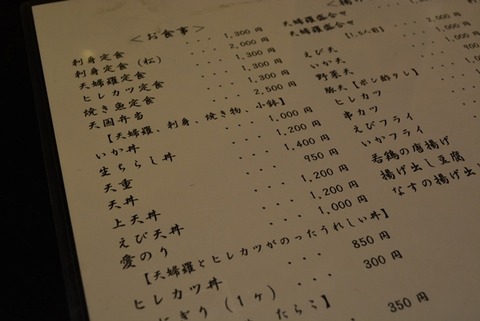 ＜お食事＞
刺身定食 ・・・ 1,300 円
刺身定食（松） ・・・ 2,000 円
天婦羅定食 ・・・ 1,300 円
ヒレカツ定食 ・・・ 1,300 円
焼き魚定食 ・・・ 1,300 円
天国弁当 ・・・ 2,500 円
【天婦羅、刺身、焼き物、小鉢】
いか丼 ・・・ 1,000 円
生ちらし丼 ・・・ 1,200 円
天重 ・・・ 1,400 円
天丼 ・・・ 950 円
上天丼 ・・・ 1,200 円
えび天丼 ・・・ 1,200 円
愛のり ・・・ 1,000 円
【天婦羅とヒレカツがのったうれしい丼】
ヒレカツ丼 ・・・ 850 円
にぎり（1ヶ） ・・・ 300 円
たらこ】
350 円
＜揚
天婦羅盛合せ
天婦羅盛合せ
【1.5人前】 2,000
えび天
いか天
野菜天
豚天【ポン酢タレ】
ヒレカツ
串カツ
えびフライ
いかフライ
若鶏の唐揚げ
揚げ出し豆腐
なすの揚げ出し